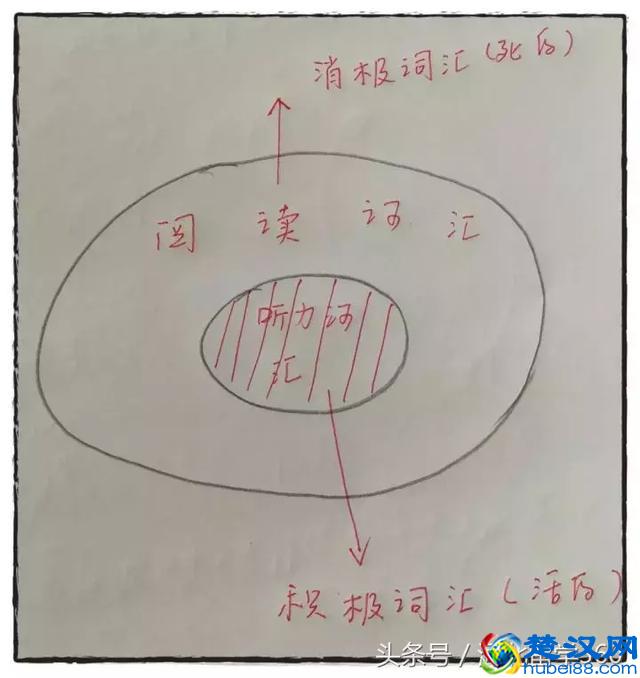 消极词汇(死的)
阅读词汇
听力词
汇
积极词汇(活的)
头条号/
楚汉网
hubei88.com